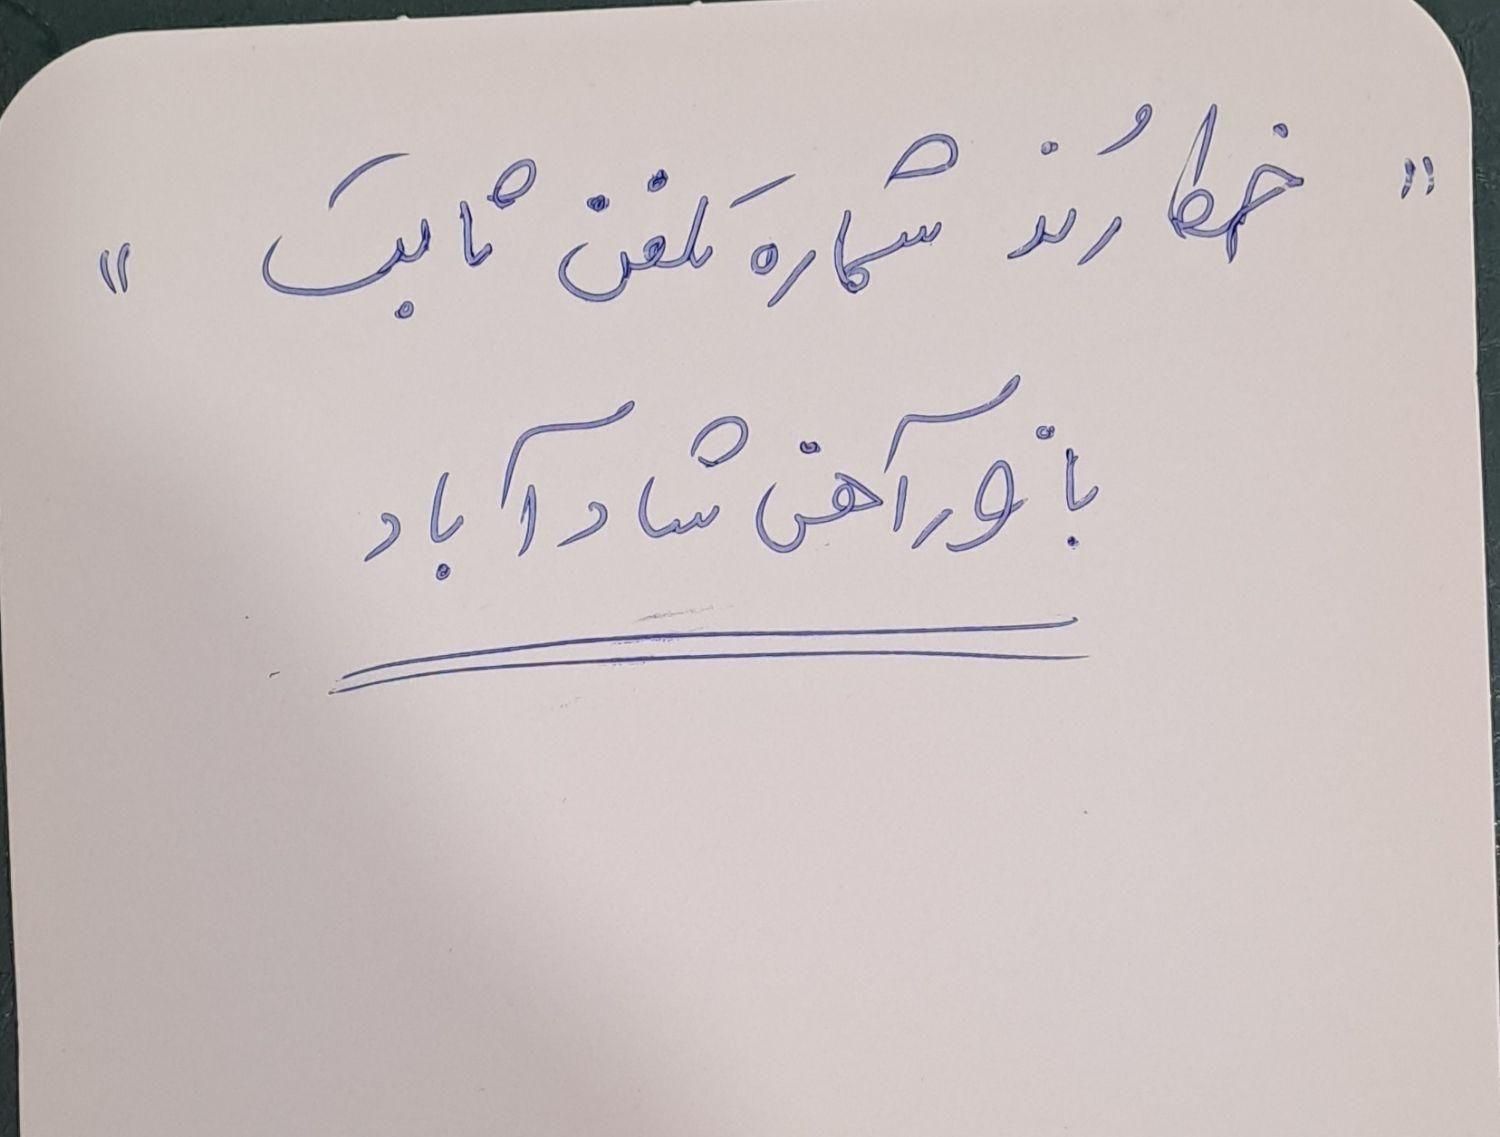 " خط رُند شماره تلفن ثابت "
بازار آهن شاد آباد